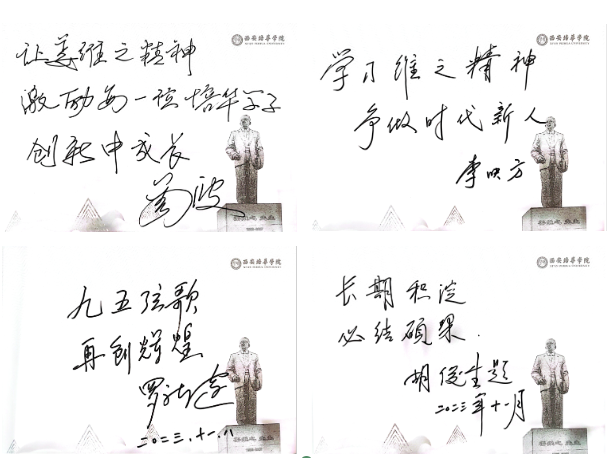 西安培华学院
让姜维之精神
激励每一位培华学子
创新中成长
西安培华学院
学习维之精神
争做时代新人
李映方
西安培华学院
九五弦歌
再创辉煌
二〇二三.十一.八
西安培华学院
长期积淀
必结硕果.
胡俊生题
二〇二三年十一月